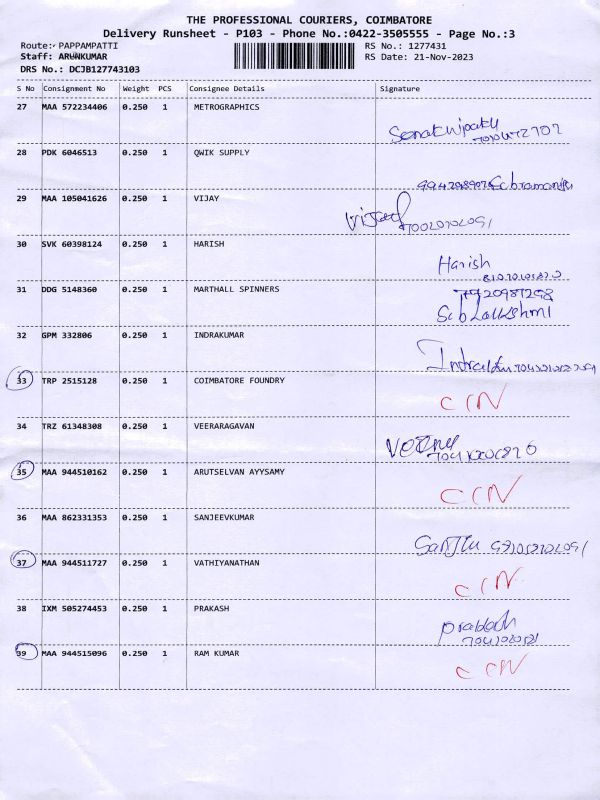 THE PROFESSIONAL COURIERS, COIMBATORE
Delivery Runsheet - P103 - Phone No.:0422-3505555 - Page No.:3
Route: PAPPAMPATTI RS No.: 1277431
Staff: ARUNKUMAR RS Date: 21-Nov-2023
DRS No.: DCJB127743103
S No Consignment No Weight PCS Consignee Details Signature
27 MAA 572234406 0.250 1 METROGRAPHICS
28 PDK 6046513 0.250 1 QWIK SUPPLY
29 MAA 105041626 0.250 1 VIJAY
30 SVK 60398124 0.250 1 HARISH
Harish
31 DDG 5148360 0.250 1 MARTHALL SPINNERS
32 GPM 332806 0.250 1 INDRAKUMAR
33 TRP 2515128 0.250 1 COIMBATORE FOUNDRY
CIN
34 TRZ 61348308 0.250 1 VEERARAGAVAN
35 MAA 944510162 0.250 1 ARUTSELVAN AYYSAMY
CCN
36 MAA 862331353 0.250 1 SANJEEVKUMAR
37 MAA 944511727 0.250 1 VATHIYANATHAN
CIN
38 IXM 505274453 0.250 1 PRAKASH
39 MAA 944515096 0.250 1 RAM KUMAR
CCN